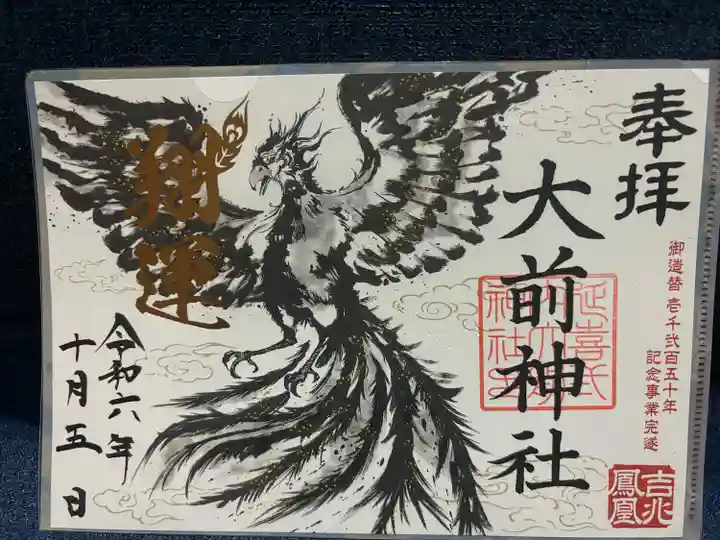 奉拝
御造替壱千弐百五十年
記念事業完遂
大前神社
延喜式内
大前
神社
吉兆
鳳凰
翔運
令和六年
十月五日